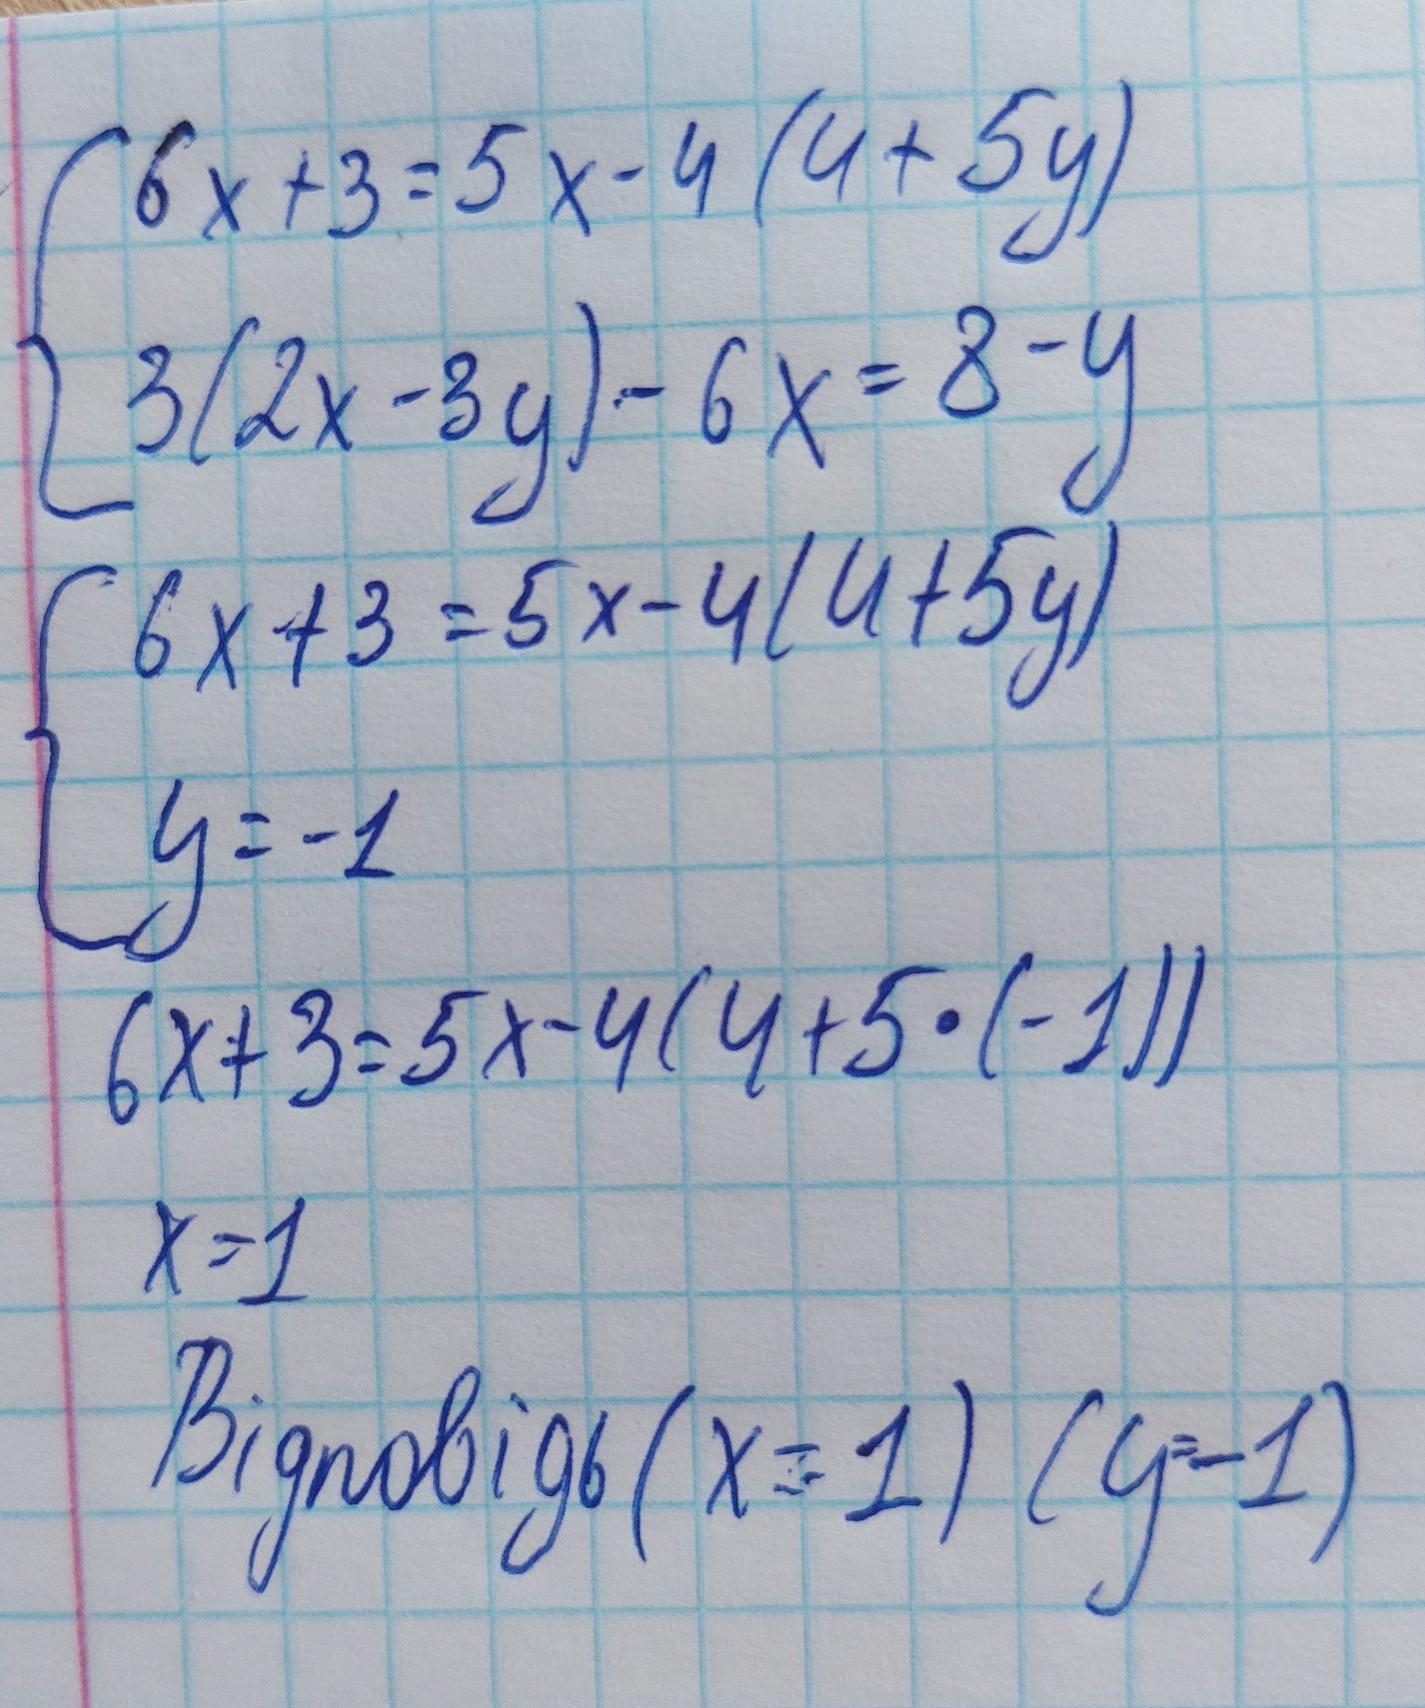 6x+3=5x-4(4+5y)
3(2x-3y)-6x=8-y
6x+3=5x-4(4+5y)
y=-1
6x+3=5x-4(4+5•(-1))
x=1
Відповідь (x=1) (y=-1)